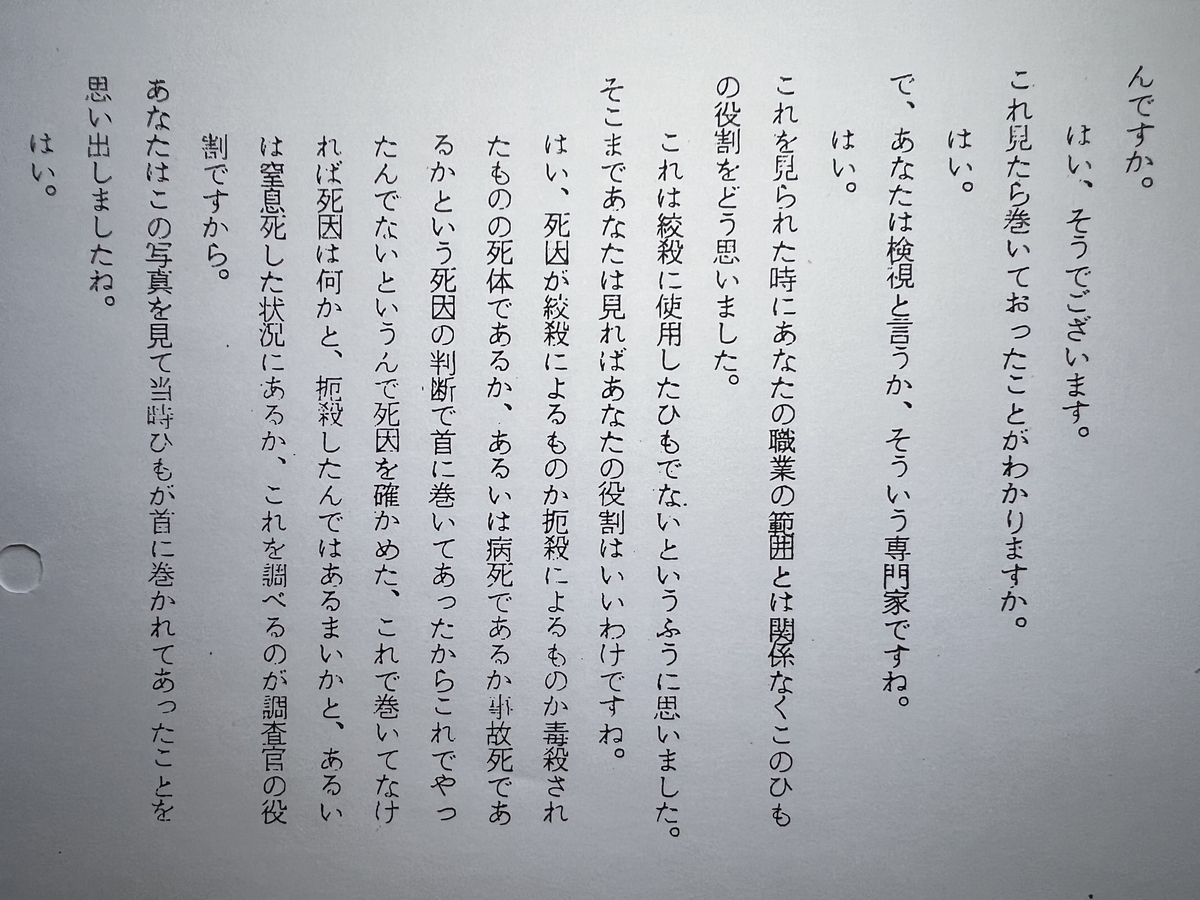 んですか。
はい、そうでございます。
これ見たら巻いておったことがわかりますか。
はい。
で、あなたは検視と言うか、そういう専門家ですね。
はい。
これを見られた時にあなたの職業の範囲とは関係なくこのひも
の役割をどう思いました。
これは絞殺に使用したひもでないというふうに思いました。
そこまであなたは見ればあなたの役割はいいわけですね。
はい、死因が絞殺によるものか扼殺によるものか毒殺され
たものの死体であるか、あるいは病死であるか事故死であ
るかという死因の判断で首に巻いてあったからこれでやっ
たんでないというんで死因を確かめた、これで巻いてなけ
れば死因は何かと、扼殺したんではあるまいかと、あるい
は窒息死した状況にあるか、これを調べるのが調査官の役
割ですから。
あなたはこの写真を見て当時ひもが首に巻かれてあったことを
思い出しましたね。
はい。